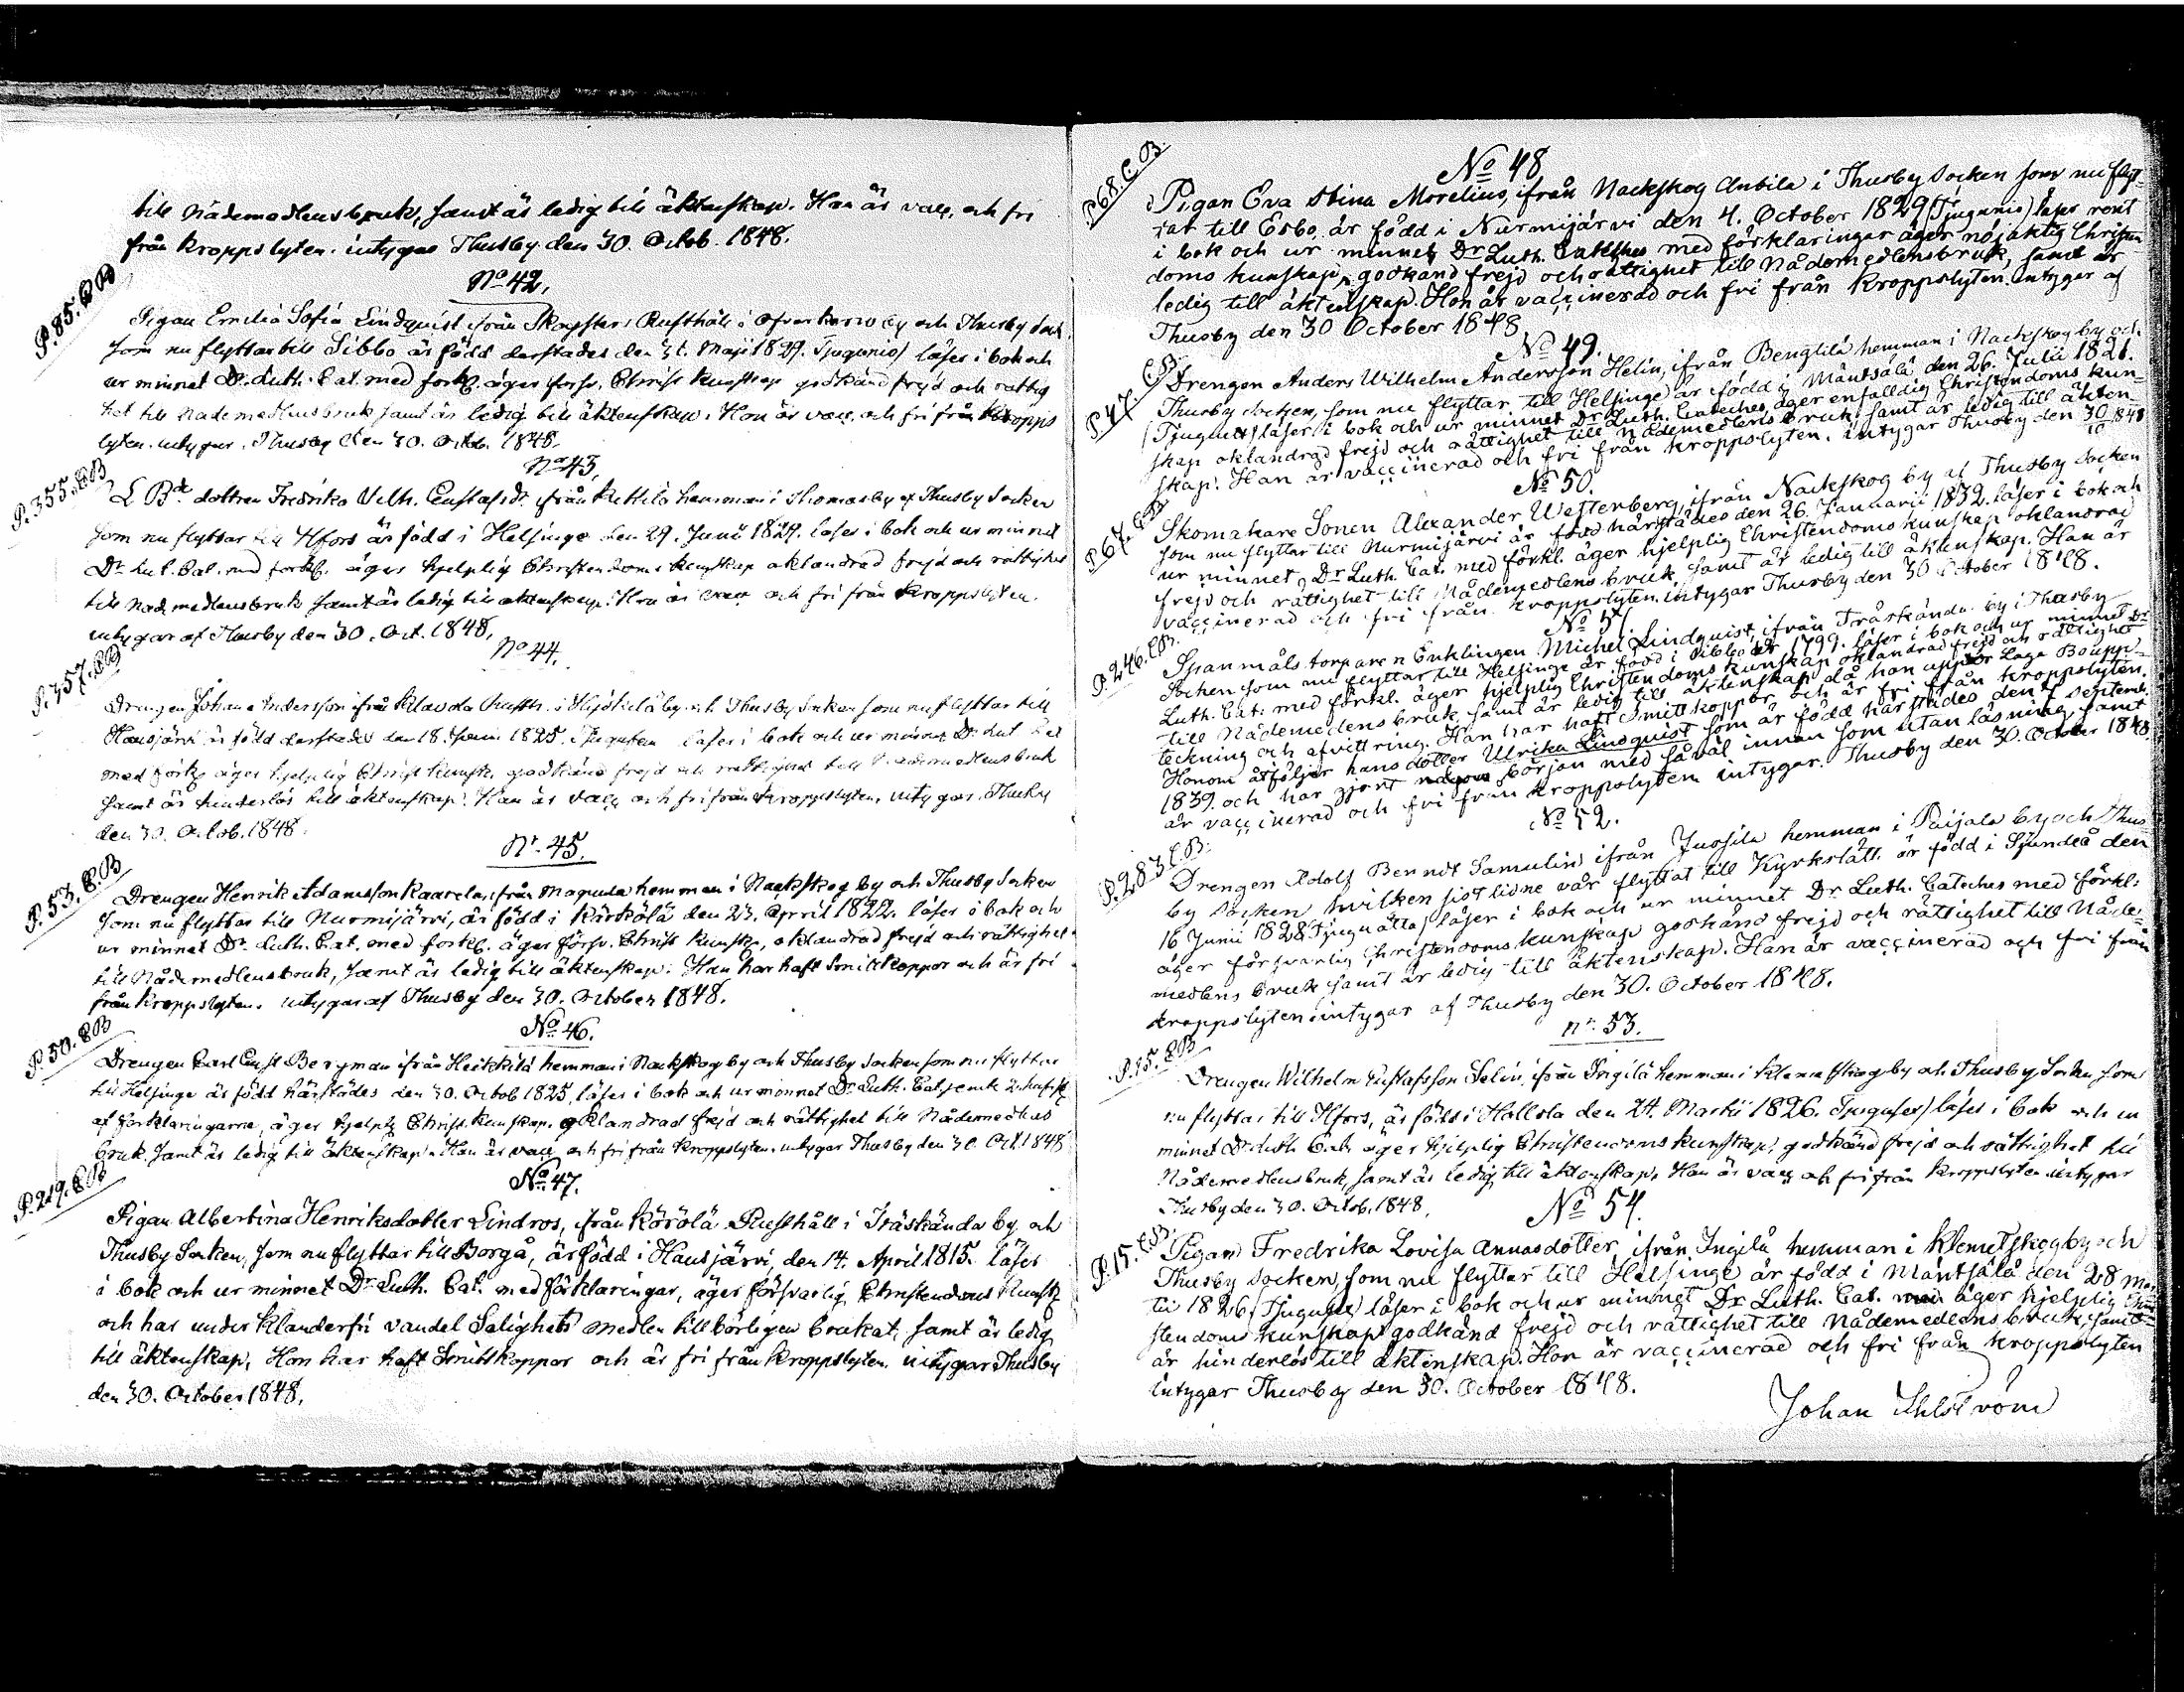 till Nådemedlens bruk, samt är ledig till äktenskap. Han är vacc. och fri
från kroppslyten. intygas Thusby den 30. Octob. 1848.
P. 85. C.B
No 42.
Pigan Emelia Sofia Lindquist ifrån Skogsters Rusthåll i Ofvankervo by och Thusby Sock.
som nu flyttar till Sibbo är född derstädes den 31. Maji 1829. Tjugunio/ läser i bok och
ur minnet Dr. Luth. Cat. med förkl. äger försv. Christ. kunskap godkänd frejd och rättig
het till Nådemedlens bruk samt är ledig till äktenskap. Hon är vacc. och fri från kropps
lyten. intygar. Thusby den 30. Octob. 1848.
P. 355. C.B
No 43.
dottren Fredrika Vilh. Gustafsdr ifrån Kettilä hemman i Thomasby af Thusby Socken
som nu flyttar till Hfors är född i Helsinge den 29. Junii 1829. läser i bok och ur minnet
Dr Lut. Cat. med förkl. äger hjelplig Christendoms kunskap oklandrad frejd och rättighet
till Nademedlens bruk samt är ledig till äktenskap. Hon är vacc och fri från kroppslyten.
intygar af Thusby den 30. Oct. 1848.
P. 357. C.B
No 44.
Drengen Johan Andersson ifrån Klavda Rusth. i Hyökkälä by och Thusby Socken som nu flyttar till
Hausjärvi är född derstädes den 18. 1825. läser i bok och ur minnet Dr Lut Cat
med förkl äger hjelplig Christ kunsk. godkänd frejd och rättighet till Nademedlens bruk
samt är hinderlös till äktenskap. Han är vacc och fri från kroppslyten, intygar. Thusby
den 30. Octob. 1848.
P. 53. C.B
Nr. 45.
Drengen Henrik Adamsson Kaarela, ifrån Magnula hemman i Nackskog by och Thusby Socken
som nu flyttar till Nurmijärvi, är född i Kärkölä den 23. April 1822. läser i bok och
ur minnet Dr. Luth. Cat. med förkl. äger försv. Christ kunskp, oklandrad frejd och rättighet
till Nådemedlens bruk, samt är ledig till äktenskap. Han har haft Smittkoppor och är fri
från kroppslyten. intygar af Thusby den 30. October 1848.
P. 50. C.B
No 46.
Drengen Carl Gust Bergman ifrån Heikkilä hemman i Nackskog by och Thusby Socken som nu flyttar
till Helsinge är född härstädes den 30. Octob 1825, läser i bok och ur minnet Dr Luth. Cat. jemte 2 huf. st
af förklaringarne, äger hjelpl Christ. kunskap. oklandrad frejd och rättighet till Nådemedlens
bruk samt är ledig till äktenskap. Han är vacc och fri från kroppslyten. intygar Thusby den 30. Oct. 1848
P. 219. C.B
No 47.
Pigan Albertina Henriksdotter Lindros, ifrån Körölä Rusthåll i Träskända by och
Thusby Socken, som nu flyttar till Borgå, är född i Hausjärvi, den 14. April 1815. läser
i bok och ur minnet Dr Luth. Cat. med förklaringar, äger försvarlig Christendoms kunsk
och har under klanderfri vandel Salighets medlen tillbörligen brukat, samt är ledig
till äktenskap, Hon har haft Smittkoppor och är fri från kroppslyten intygar Thusby
den 30. October 1848.
P. 68. C.B.
No 48
Pigan Eva Stina Morelius, ifrån Nackskog Anbila i Thusby Socken som nu flyt-
tat till Esbo, är född i Nurmijärvi den 4. October 1829 (Tjugunio) läser rent
i bok och ur minnet Dr Luth. Catches med förklaringar äger nöjaktig Christen
doms kunskap, godkänd frejd och rättighet till Nådemedlens bruk, samt är
ledig till äktenskap. Hon är vaccinerad och fri från kroppslyten. intygar af
Thusby den 30 October 1848
P. 47. C.B
No 49.
Drengen Anders Wilhelm Andersson Helin, ifrån Bengtilä hemman i Nackskog by och
Thusby Socken, som nu flyttar till Helsinge är född i Mäntsälä den 26. Julii 1821.
(Tjuguett) läser i bok och ur minnet Dr Luth. Cateches, äger enfalldig Christendoms kun-
skap oklandrad frejd och rättighet till Nådemedlens bruk samt är ledig till äkten-
skap. Han är vaccinerad och fri från kroppslyten. intygar Thusby den 30/10 848
P. 67. C.B
No 50.
Skomakare Sonen Alexander Westenberg, ifrån Nackskog by af Thusby Socken
som nu flyttar till Nurmijärvi är född härstädes den 26. Januarii 1832. läser i bok och
ur minnet, Dr Luth. Cat. med förkl. äger hjelplig Christendoms kunskap oklandrad
frejd och rättighet till Nådemedlens bruk, samt är ledig till äktenskap. Han är
vaccinerad och fri från kroppslyten. intygar Thusby den 30 October 1848.
P. 246. C.B.
No 51
Spanmåls torparen Enklingen Michel Lindquist, ifrån Träskända by i Thusby
Socken som nu flyttar till Helsinge är född i Sibbo år 1799. läser i bok och ur minnet Dr
Luth. Cat: med förkl. äger hjelplig Christendoms kunskap oklandrad frejd och rättighet
till Nådemedlens bruk samt är ledig till äktenskap då han uppter Laga Boupp-
teckning och afvittring. Han har haft Smittkoppor, och är fri från kroppslyten.
Honom åtföljer hans dotter Ulrika Lindquist som är född härstädes den 7 Septemb.
1839. och har gjort någon början med såväl innan som utan läsning, samt
är vaccinerad och fri från kroppslyten intygar. Thusby den 30. October 1848.
P. 283 C.B.
No 52.
Drengen Adolf Berndt Samulin ifrån Juosila hemman i Paijala by och Thus
by Socken, hvilken sistlidne vår flyttat till Kyrkslätt. är född i Sjundeå den
16 Junii 1828 (Tjuguåtta) läser i bok och ur minnet Dr Luth. Cateches med förkl:
äger försvarlig Christendoms kunskap godkänd frejd och rättighet till Nåde-
medlens bruk samt är ledig till äktenskap. Han är vaccinerad och fri från
kroppslyten intygar af Thusby den 30. October 1848.
P. 15. C.B
nr. 53.
Drengen Wilhelm Gustafsson Selin, ifrån Ingilä hemman i Klemetskog by och Thusby Socken som
nu flyttar till Hfors, är född i Hollola den 24. Martii 1826. Tjugusex/ läser i bok och ur
minnet Dr Luth Cat. äger hjelplig Christendoms kunskap, godkänd frejd och rättighet till
Nådemedlens bruk, samt är ledig till äktenskap. Han är vacc och fri från kroppslyten intygar
Thusby den 30. Octob. 1848.
P. 15. C.B.
No 54.
Pigan Fredrika Lovisa Annasdotter, ifrån Ingilä hemman i Klemetskog by och
Thusby Socken, som nu flyttar till Helsinge är född i Mäntsälä den 28 Mar
tii 1826 (Tjugusex) läser i bok och ur minnet Dr Luth. Cat. äger hjelplig Chri
stendoms kunskap godkänd frejd och rättighet till Nådemedlens bruk, samt
är hinderlös till äktenskap. Hon är vaccinerad och fri från kroppslyten
intygar Thusby den 30. October 1848.
Johan Ahlström